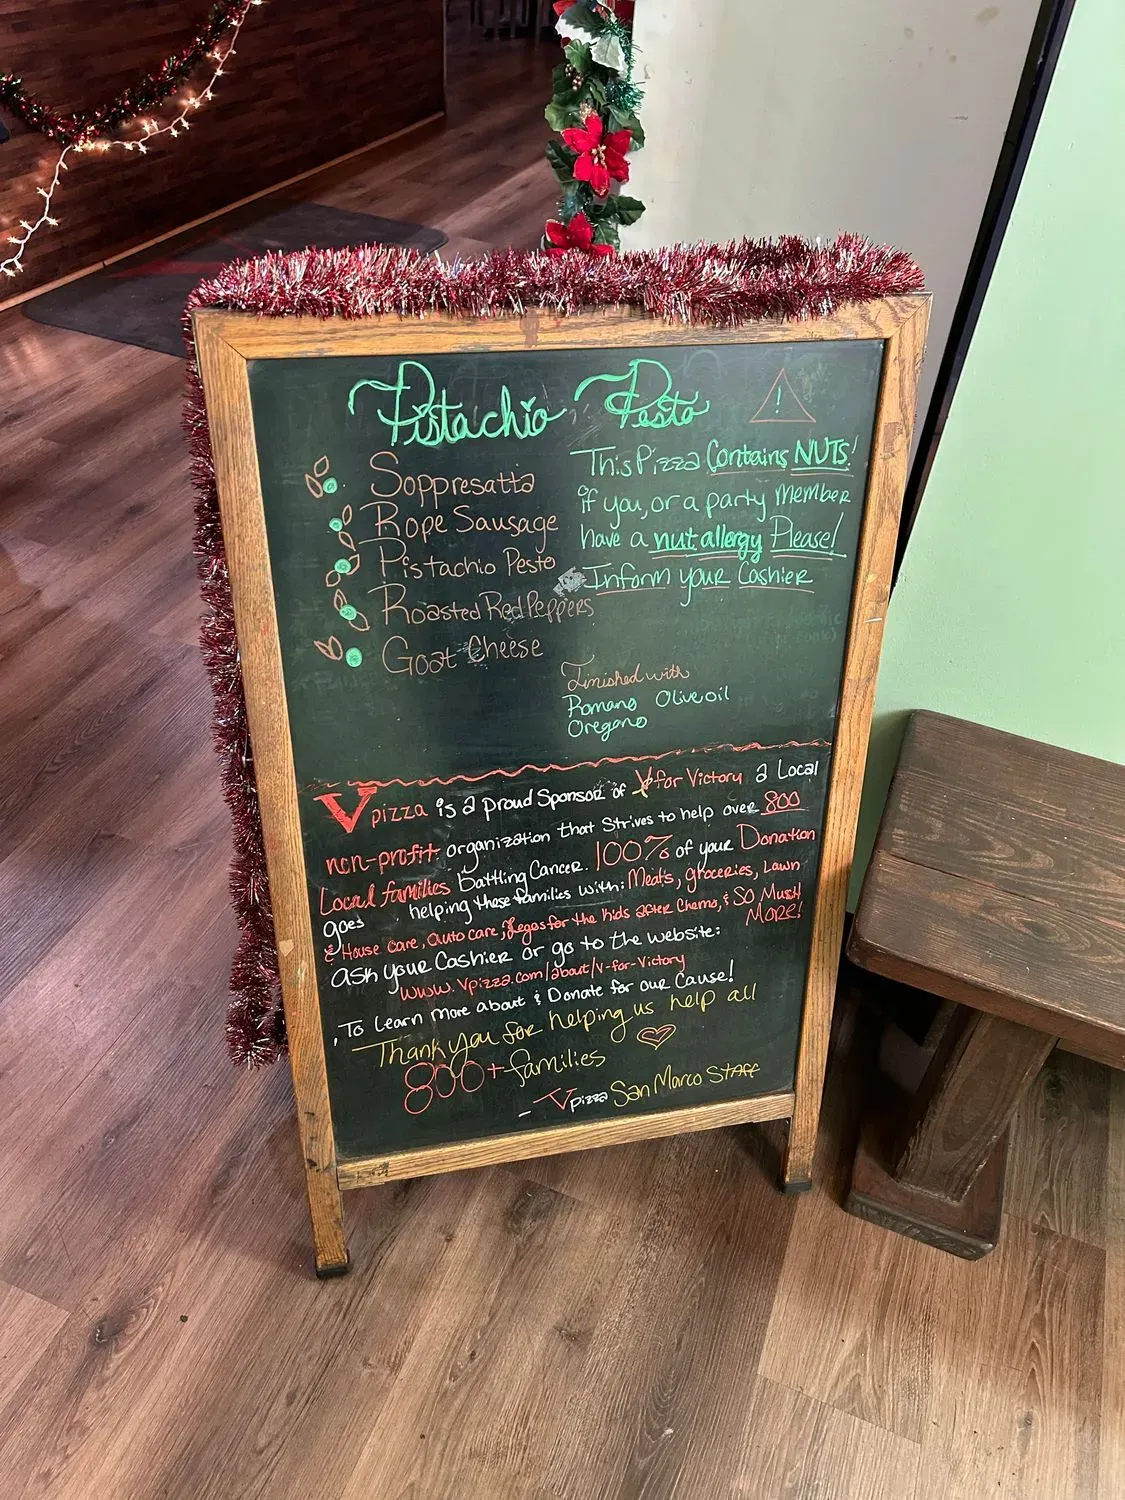 Pistachio Pesto
!
Soppresatta
Rope Sausage
Pistachio Pesto
Roasted Red Peppers
Goat Cheese
This Pizza Contains NUTS!
if you, or a party member
have a nut allergy Please!
Inform your Cashier
Finished with
Romano Olive oil
Oregano
V pizza is a proud Sponsor of V for Victory a Local
non-profit organization that Strives to help over 800
Local families battling Cancer. 100% of your Donation
goes helping these families with: Meals, groceries, Lawn
& House care, auto care, & Legos for the kids after Chemo, & SO MUCH
MORE!
ask your Cashier or go to the website:
www.Vpizza.com/about/v-for-victory
, To Learn more about & Donate for our Cause!
Thank you for helping us help all
800+ families
- V pizza San Marco Staff